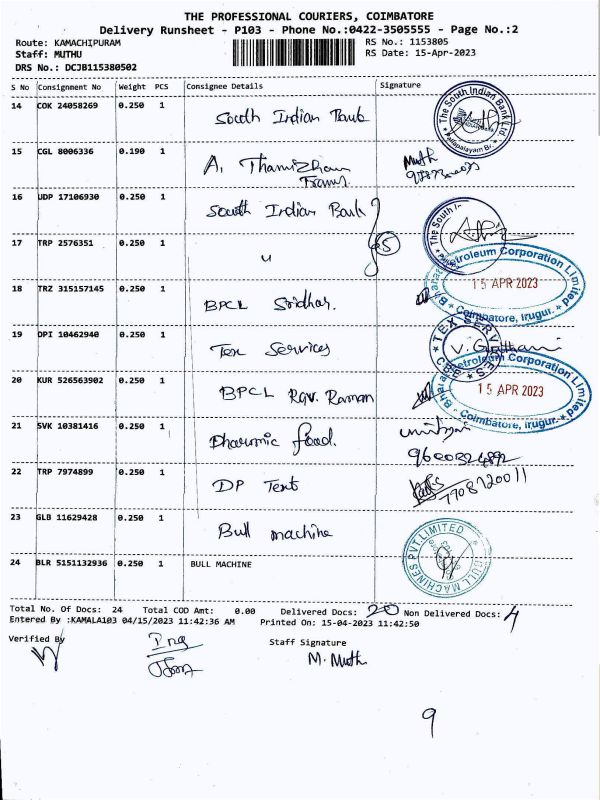 THE PROFESSIONAL COURIERS, COIMBATORE
Delivery Runsheet - P103 - Phone No.:0422-3505555 - Page No.:2
Route: KAMACHIPURAM RS No.: 1153805
Staff: MUTHU RS Date: 15-Apr-2023
DRS No.: DCJB115380502
S No Consignment No Weight PCS Consignee Details Signature
14 COK 24058269 0.250 1 South Indian Bank
The South Indian Bank Ltd.
15 CGL 8006336 0.190 1 A. Muth
16 UDP 17106930 0.250 1 South Indian Bank
The South I
17 TRP 2576351 0.250 1 " 5
18 TRZ 315157145 0.250 1 BPCL Sridhar.
Petroleum Corporation Limited
15 APR 2023
Coimbatore, Irugur.
19 OPI 10462940 0.250 1 Tex Services
TEX SERVICES CBE
20 KUR 526563902 0.250 1 BPCL Raman
Petroleum Corporation Limited
15 APR 2023
Coimbatore, Irugur.
21 SVK 10381416 0.250 1 food.
22 TRP 7974899 0.250 1 DP Text 7708720011
23 GLB 11629428 0.250 1 Bull machine
BULL MACHINES PVT. LIMITED
24 BLR 5151132936 0.250 1 BULL MACHINE
Total No. Of Docs: 24 Total COD Amt: 0.00 Delivered Docs: 20 Non Delivered Docs: 4
Entered By :KAMALA103 04/15/2023 11:42:36 AM Printed On: 15-04-2023 11:42:50
Verified By Staff Signature
M. Muth
9